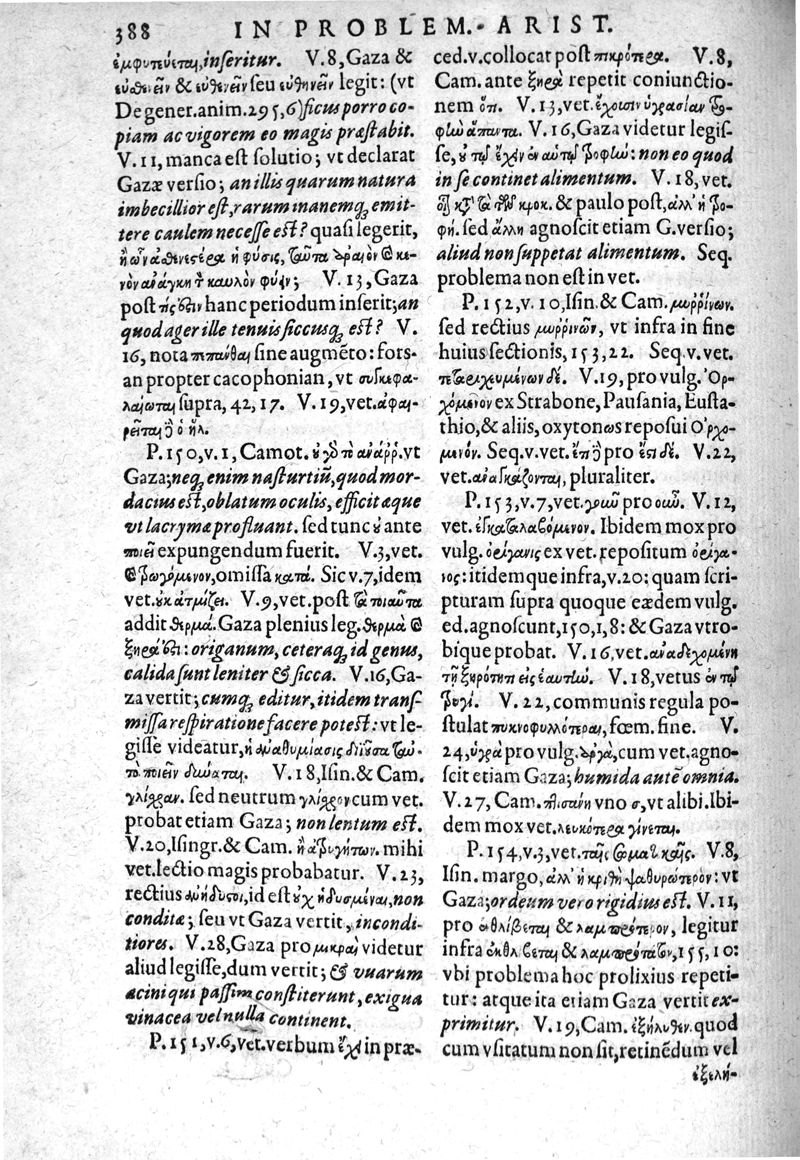 388
IN PROBLEM. ARIST.
ἐμφυτεύεται, inseritur. V.8, Gaza &
εὐθενεῖν & εὐθηνεῖν legit: (vt
De gener. anim. 295, 6) ficus porro co-
piam ac vigorem eo magis præstabit.
V. 11, manca est solutio; vt declarat
Gazæ versio; an illis quarum natura
imbecillior est, rarum inanemq; emit-
tere caulem necesse est? quasi legerit,
ἢ ὧν ἀσθενεστέρα ἡ φύσις, ταῦτα ἀραιὸν καὶ κε-
νὸν ἀνάγκη τὸν καυλὸν φύειν; V. 13, Gaza
post hanc periodum inserit; an
quod ager ille tenuis siccusq; est? V.
16, nota πιπᾶνθαι sine augmẽto: fors-
an propter cacophonian, vt συσκεφα-
λαίωται supra, 42, 17. V. 19, vet. ἀφαι-
ρεῖται
P. 150, v. 1, Camot. vt
Gaza; neq; enim nasturtiũ, quod mor-
dacius est, oblatum oculis, efficit æque
vt lacrymæ profluant. sed tunc ȣ ante
ποιεῖ expungendum fuerit. V. 3, vet.
καὶ τρωγόμενον, omissa κατά. Sic v. 7, idem
vet. ȣκ ἀτμίζει. V. 9, vet. post τὰ τοιαῦτα
addit θερμά. Gaza plenius leg. θερμὰ καὶ
ξηρά ἐστι: origanum, ceteraq; id genus,
calida sunt leniter & sicca. V. 16, Ga-
za vertit; cumq; editur, itidem trans-
missa respiratione facere potest: vt le-
gisse videatur, ἡ ἀναθυμίασις διιοῦσα ταὐ-
τὸ ποιεῖν δύναται. V. 18, Isin. & Cam.
γλίσχραν. sed neutrum γλίσχρον cum vet.
probat etiam Gaza; non lentum est.
V. 20, Isingr. & Cam. mihi
vet. lectio magis probabatur. V. 23,
rectius ἀνήδυντοι, id est ȣχ ἡδυσμέναι, non
conditæ; seu vt Gaza vertit, incondi-
tiores. V. 28, Gaza pro μικραὶ videtur
aliud legisse, dum vertit; & vuarum
acini qui passim constiterunt, exigua
vinacea vel nulla continent.
P. 151, v. 6, vet. verbum ἔχει in præ-
ced. v. collocat post πικρότερα. V. 8,
Cam. ante ξηρὰ repetit coniunctio-
nem ὅτι. V. 13, vet. ἔχουσιν ὑγρασίαν τρο-
φὴν ἅπαντα. V. 16, Gaza videtur legis-
se, ȣ τῷ ἔχειν ἐν αὑτῷ τροφήν: non eo quod
in se continet alimentum. V. 18, vet.
κροκ. & paulo post, ἀλλ' ἡ τρο-
φή. sed ἄλλη agnoscit etiam G. versio;
aliud non suppetat alimentum. Seq.
problema non est in vet.
P. 152, v. 10, Isin. & Cam. μυρρίνων.
sed rectius μυρρινῶν, vt infra in fine
huius sectionis, 153, 22. Seq. v. vet.
τεταριχευμένων δέ. V. 19, pro vulg. Ὀρ-
χόμενον ex Strabone, Pausania, Eusta-
thio, & aliis, oxytonωs reposui Ὀρχο-
μενόν. Seq. v. vet. ἔτι ȣ̓ pro ἐπειδὲ. V. 22,
vet. ἀναγκάζονται, pluraliter.
P. 153, v. 7, vet. pro V. 12,
vet. ἐγκαταλαβόμενον. Ibidem mox pro
vulg. ὀρίγανις ex vet. repositum ὀρίγα-
νος: itidemque infra, v. 20: quam scri-
pturam supra quoque eædem vulg.
ed. agnoscunt, 150, 1, 8: & Gaza vtro-
bique probat. V. 16, vet. ἀναδεχομένη
τῇ ξηρότητι εἰς ἑαυτήν. V. 18, vetus ἐν τῷ
V. 22, communis regula po-
stulat πυκνοφυλλότεραι, fœm. fine. V.
24, ὑγρὰ pro vulg. ἀργὰ, cum vet. agno-
scit etiam Gaza; humida autẽ omnia.
V. 27, Cam. πλισάνη vno σ, vt alibi. Ibi-
dem mox vet. λευκότερα γίνεται.
P. 154, v. 3, vet. ταῖς V. 8,
Isin. margo, ἀλλ' ἡ κριθὴ ψαθυρώτερον: vt
Gaza; ordeum vero rigidius est. V. 11,
pro ἐκθλίβεται & λαμπρότερον, legitur
infra ἐκθλίβεται & λαμπρότατον, 155, 10:
vbi problema hoc prolixius repeti-
tur: atque ita etiam Gaza vertit ex-
primitur. V. 19, Cam. ἐξήλυθεν. quod
cum vsitatum non sit, retinẽdum vel
ἐξελή-